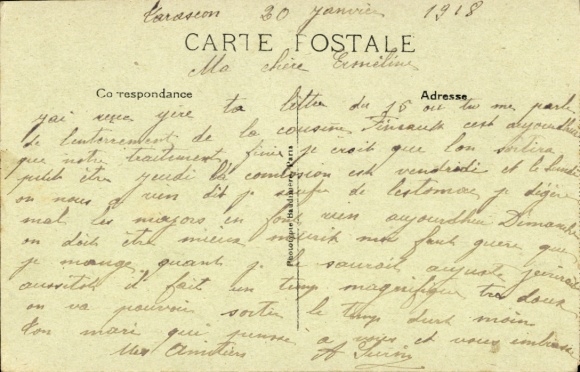 Tarascon 20 janvier 1918
CARTE POSTALE
Ma chère Erméline
Correspondance
Adresse
jai reçu yère ta lettre du 15 ou tu me parle
de lenterrement de la cousine cest aujourdhui
que notre traitement finie je croit que lon sortira
petit être jeudi la comission est vendredi et le lundi
on nous a rien dit je soufre de lestomac je digère
mal les magors en font rien aujourdhui Dimanche
on doit être mieux nourit me faut guère que
je mange quant je le saurait auguste jecrirait
aussitot il fait un temp magnifique tres doux
on va pouvoir sortir le temp dure moin
ton mari qui pense à vous et vous embrasse
Mes Amitiers
Phototypie Baudinière Paris